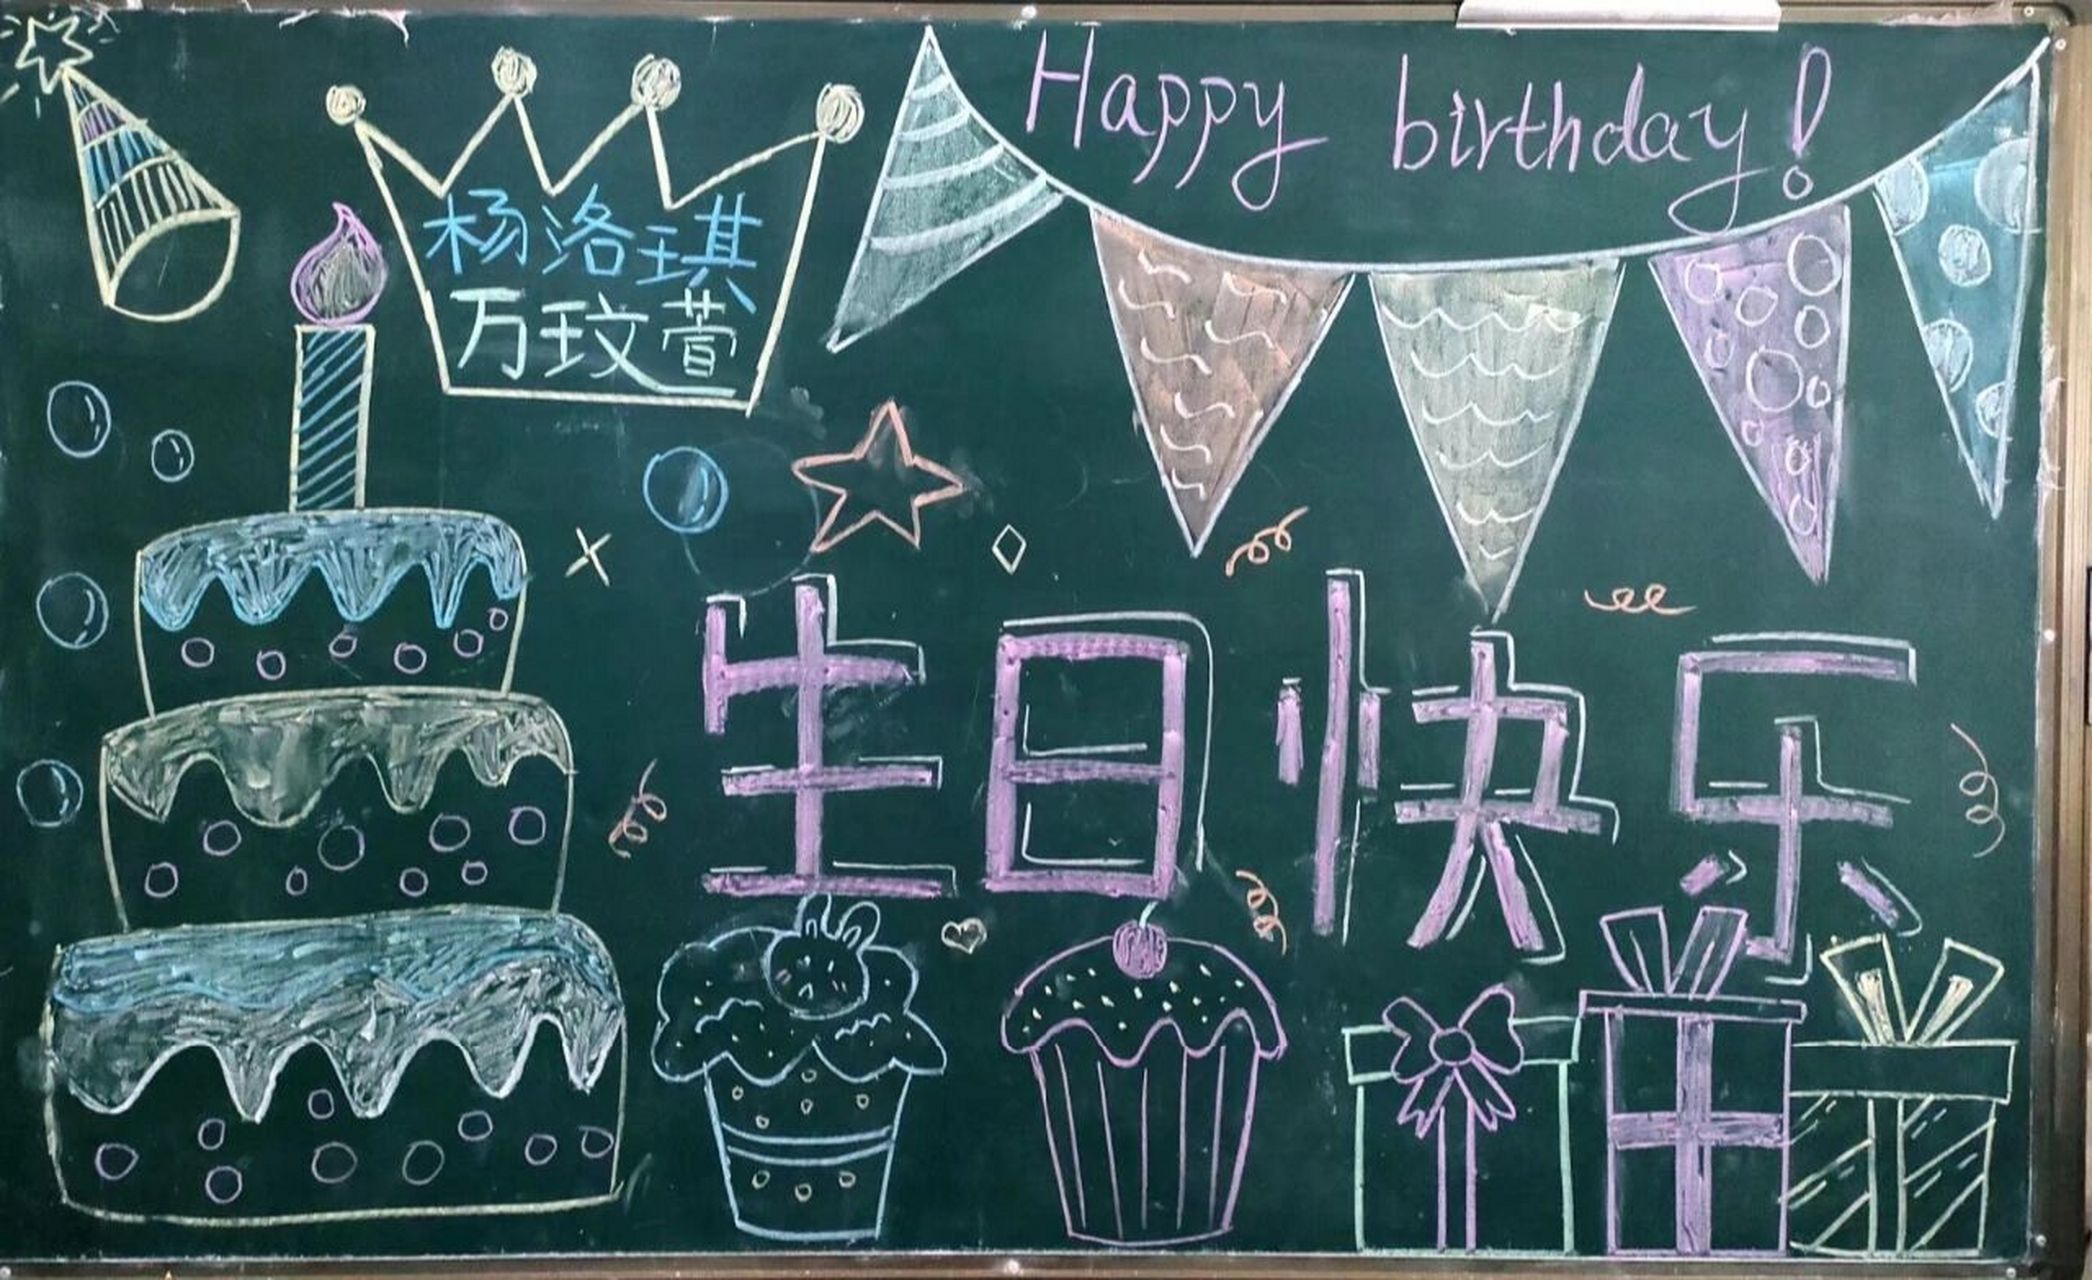 杨洛琪
万玟萱
Happy birthday!
生日快乐